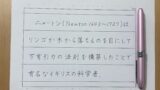 ニュートン(Newton 1643〜1727)は
リンゴが木から落ちるのを目にして
万有引力の法則を構築したことで
有名なイギリスの科学者。